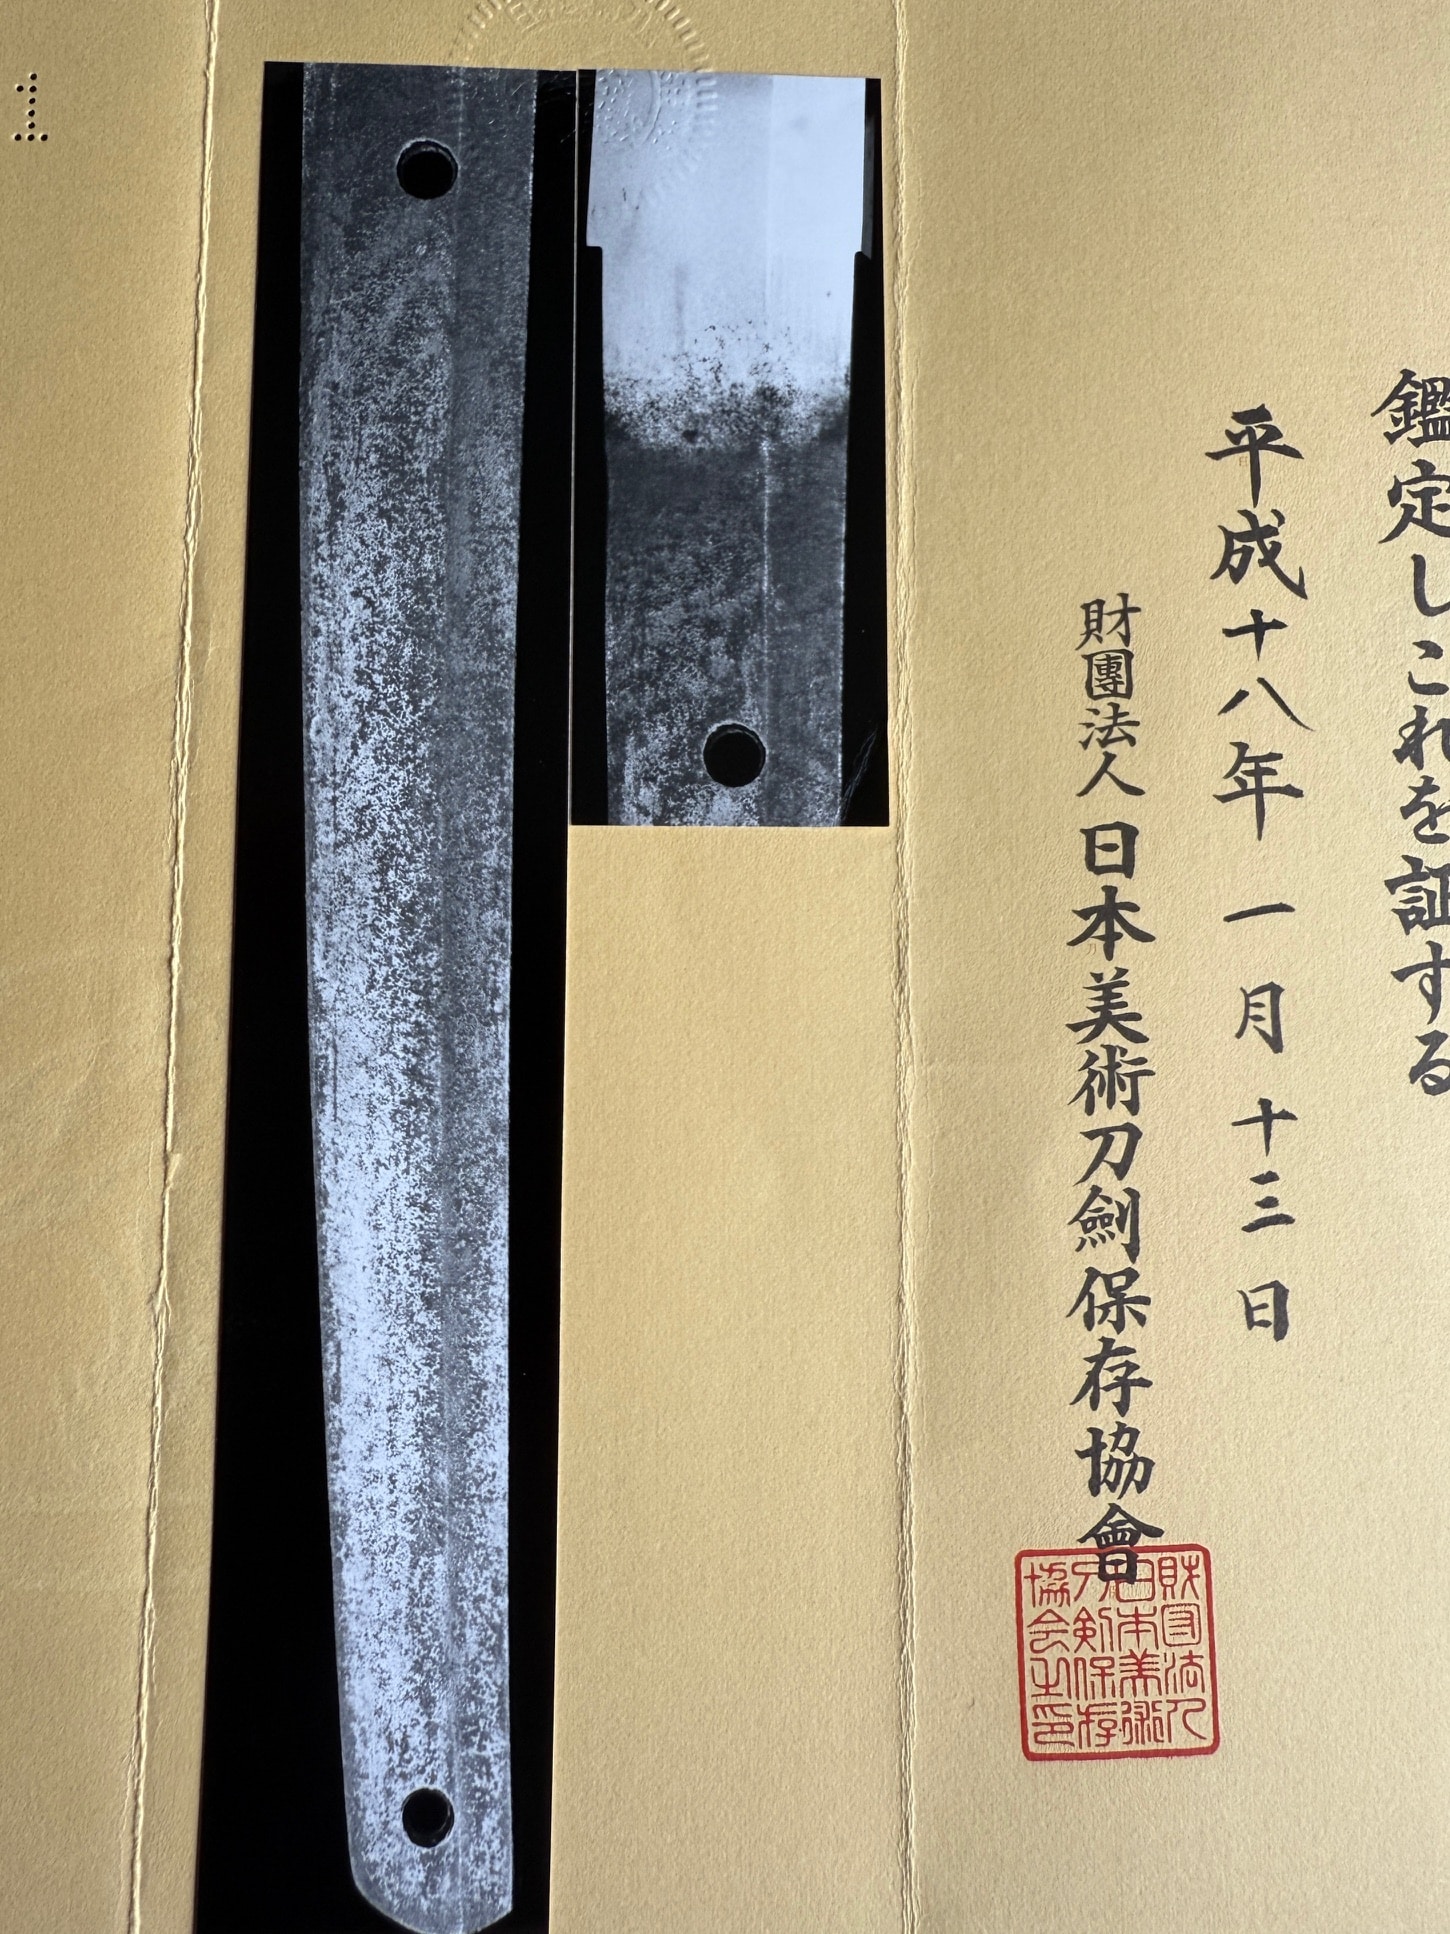 鑑定しこれを証する
平成十八年一月十三日
財團法人日本美術刀劍保存協會
財団法人
日本美術
刀剣保存
協会之印
1